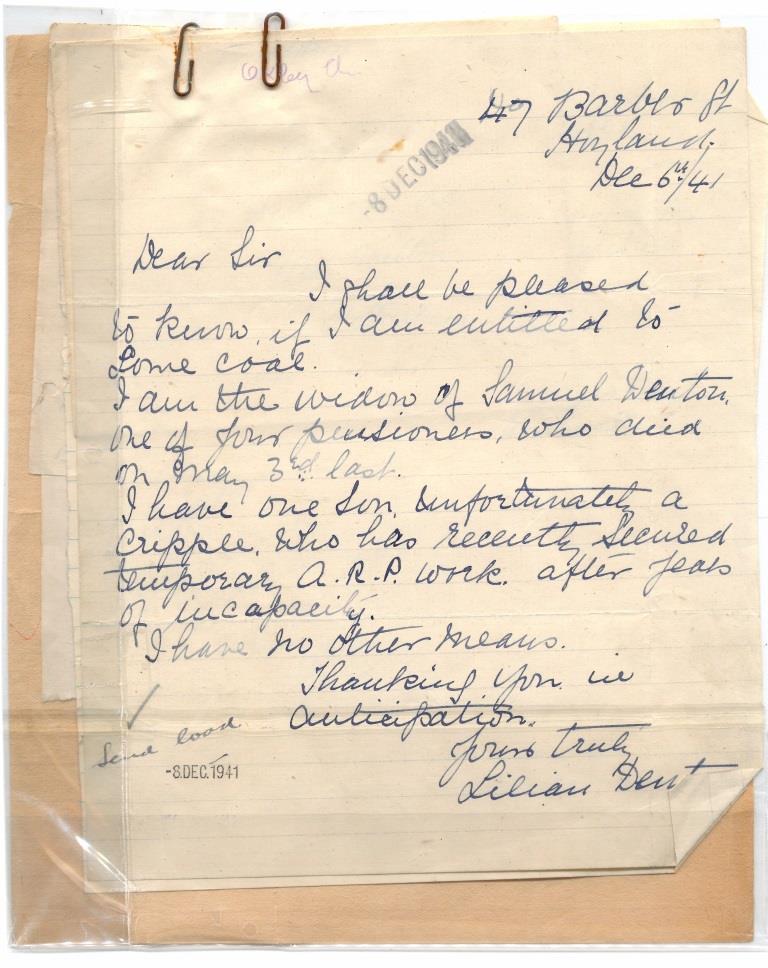 47 Barber St
Hoyland,
Dec 6th/41
-8 DEC 1941
Dear Sir
I shall be pleased
to know, if I am entitled to
some coal.
I am the widow of Samuel Denton,
one of your pensioners, who died
on May 3rd last.
I have one son, unfortunately a
cripple, who has recently secured
temporary A.R.P. work. after years
of incapacity.
I have no other means.
Thanking you in
anticipation.
Yours truly
Lilian Dent
Send load
-8 DEC. 1941